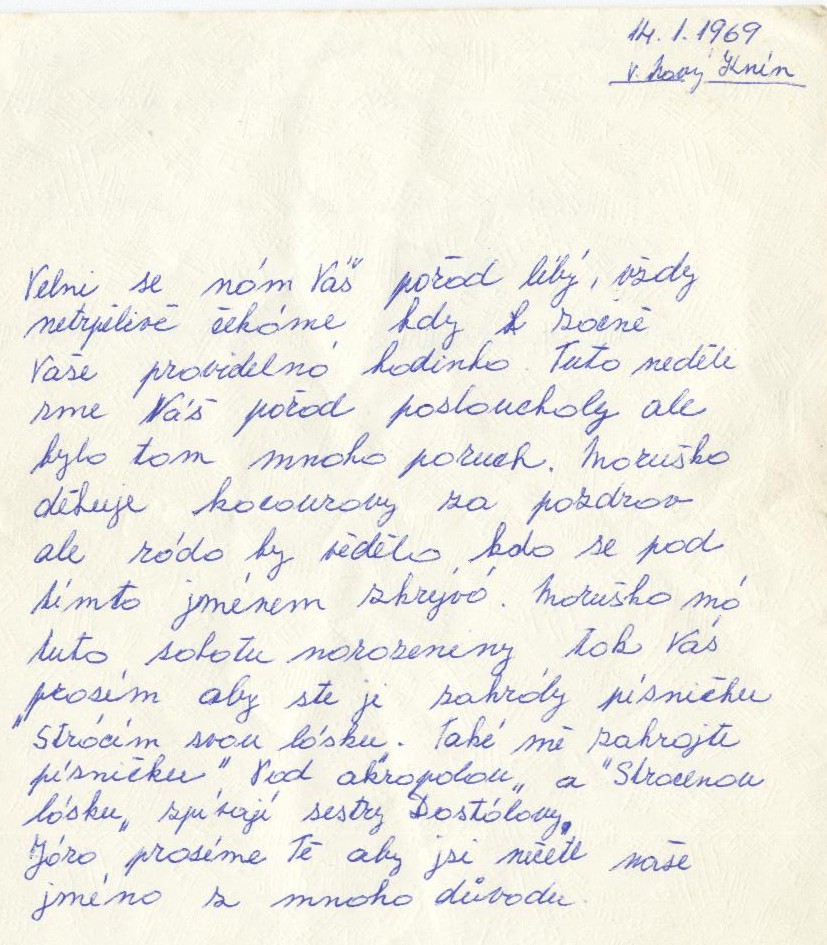 14. 1. 1969
v. Nový Knín
Velni se nám Váš pořád líbý, vždy
netrpělivě čekáme kdy začně
Vaše pravidelná hodinka. Tuto neděli
sme Váš pořad poslouchaly ale
bylo tam mnoho poruch. Maruška
děkuje kocourovy za pozdrav
ale ráda by věděla, kdo se pod
tímto jménem zkrývá. Maruška má
tuto sobotu narozeniny tak Vás
prosím aby ste ji zahrály písničku
"Strácím svou lásku". Také mě zahrajte
písničku "Pod akropolou" a "Stracenou
lásku" zpívají sestry Dostálovy.
Járo prosíme Tě aby jsi nečetl naše
jméno z mnoho důvodu.